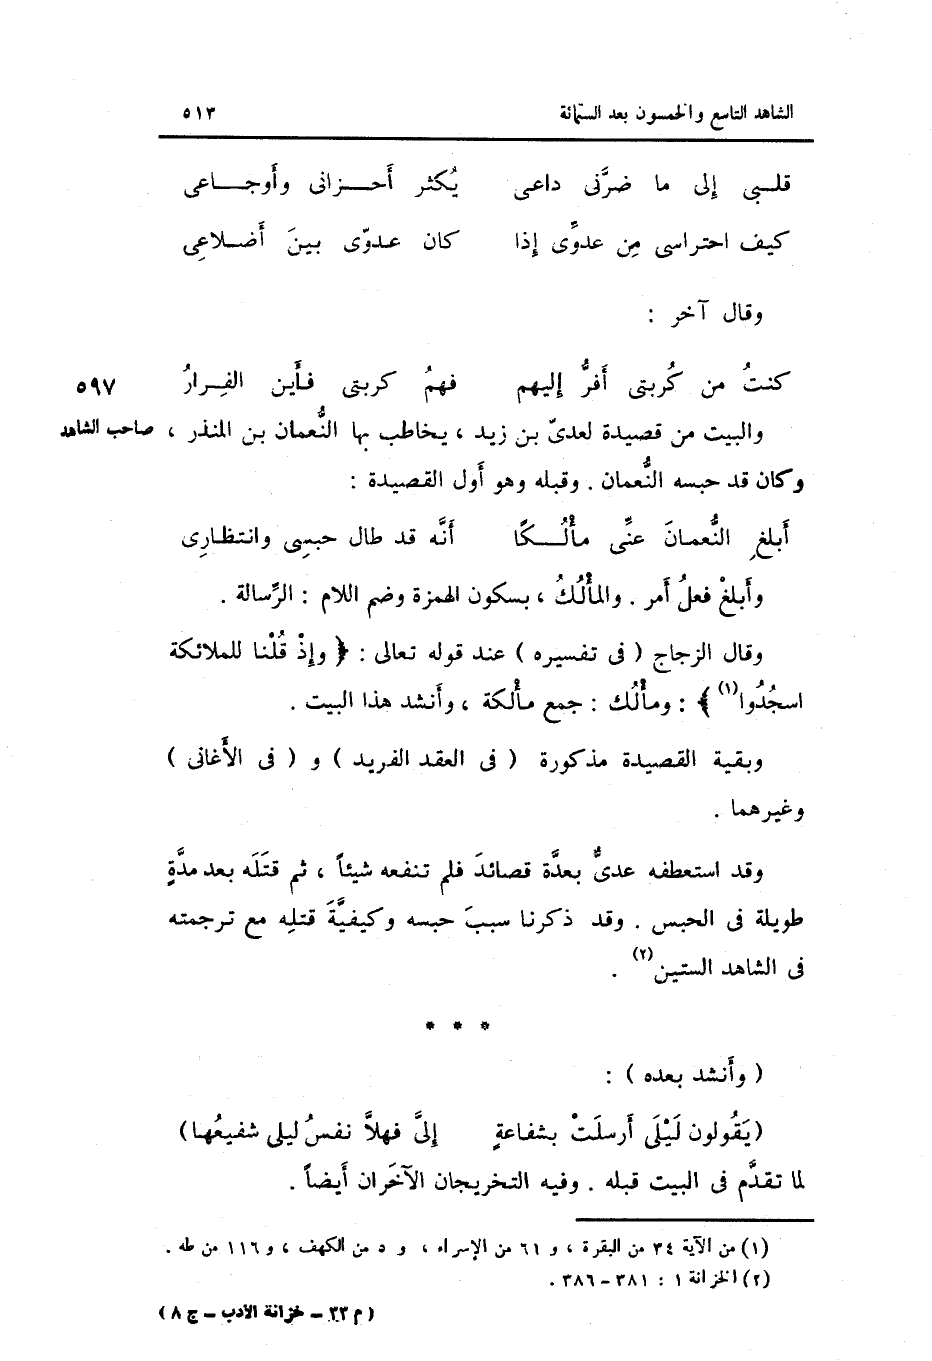 الشاهد التاسع والخمسون بعد الستمائة ٥١٣
قلـبى إلى ما ضرَّنى داعى يُكثر أَحـزانى وأَوجـاعى
كيف احتراسى مِن عدوِّى إذا كان عدوّى بينَ أَضـلاعِى
وقال آخر :
كنتُ من كُربتى أَفرُّ إليهم فهمُ كربتى فأَين الفِـرارُ ٥٩٧
والبيت من قصيدة لعدىّ بن زيد ، يخاطب بها النُّعمان بن المنذر ، صاحب الشاهد
وكان قد حبسه النُّعمان . وقبله وهو أَول القصيدة :
أَبلغِ النُّعمانَ عنِّى مأْلُـكًا أَنَّه قد طال حبسِى وانتظارى
وأَبلغْ فعلُ أَمر . والمأْلُكُ ، بسكون الهمزة وضم اللام : الرِّسالة .
وقال الزجاج ( فى تفسيره ) عند قوله تعالى : ﴿ وإِذْ قُلْنا للملائكة
اسجُدُوا(١) ﴾ : ومأْلُك : جمع مأْلكة ، وأَنشد هذا البيت .
وبقية القصيدة مذكورة ( فى العقد الفريد ) و ( فى الأَغانى )
وغيرهما .
وقد استعطفه عدىٌّ بعدَّة قصائدَ فلم تنفعه شيئاً ، ثم قتَلَه بعد مدَّةٍ
طويلة فى الحبس . وقد ذكرنا سببَ حبسه وكيفيَّةَ قتلِه مع ترجمته
فى الشاهد الستين(٢) .
* * *
( وأَنشد بعده ) :
(يَقُولون لَيْلَى أَرسلَتْ بشفاعةٍ إلىَّ فهلاَّ نفسُ ليلى شفيعُها)
لما تقدَّم فى البيت قبله . وفيه التخريجان الآخَران أَيضاً .
(١) من الآية ٣٤ من البقرة ، و ٦١ من الإسراء ، و ٥ من الكهف ، و ١١٦ من طه .
(٢) الخزانة ١ : ٣٨١ – ٣٨٦ .
( م ٣٣ – خزانة الأدب – ج ٨ )